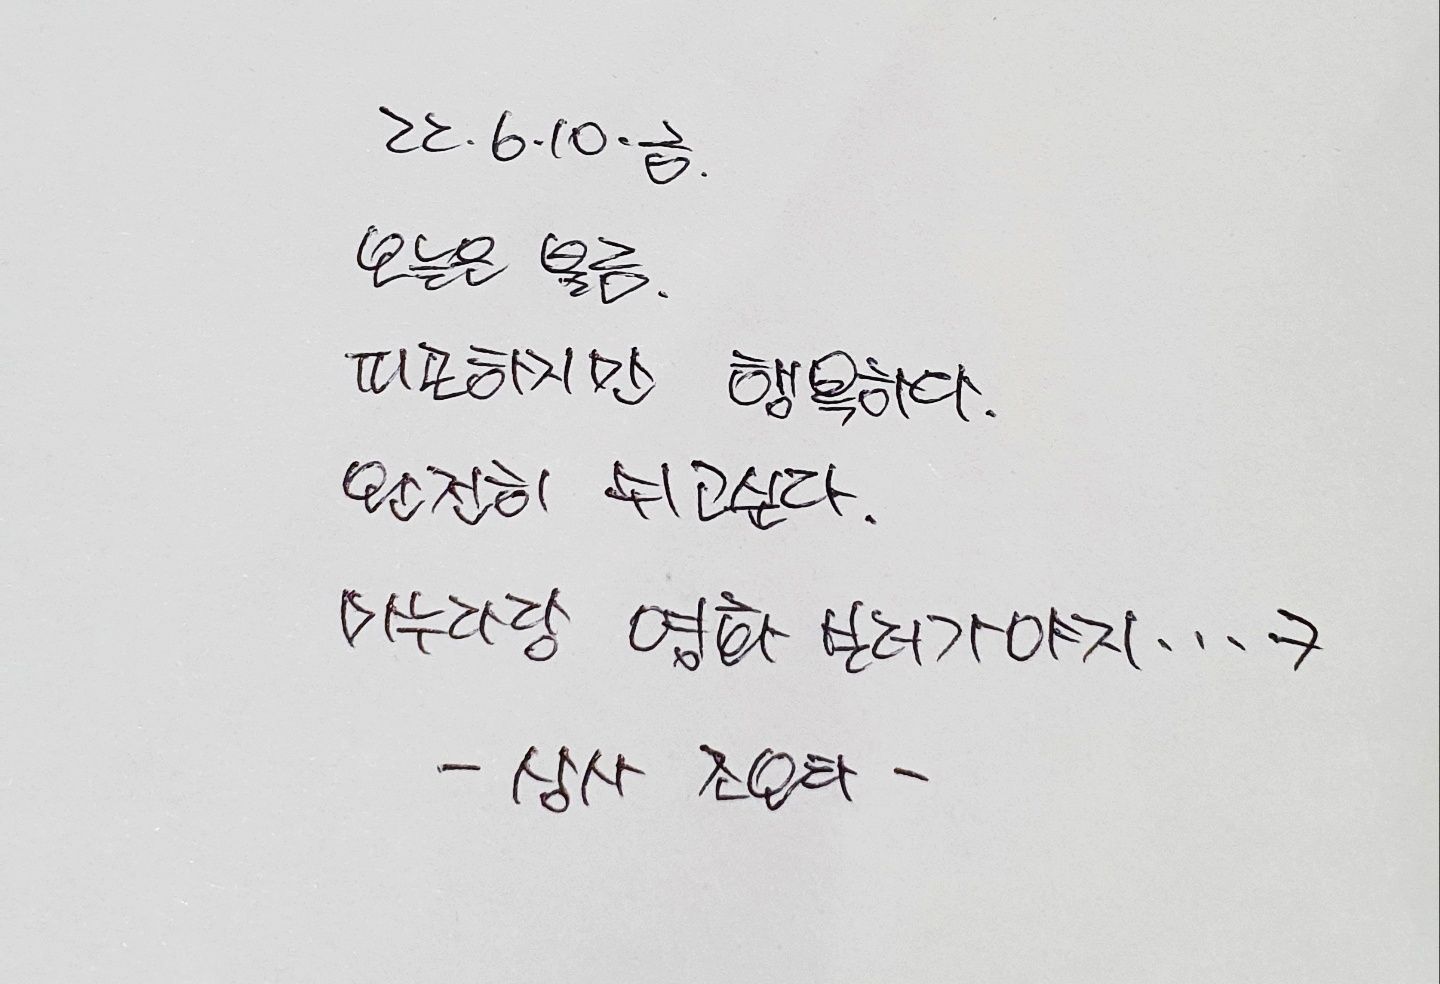 22.6.10.금.
오늘은 불금.
피곤하지만 행복하다.
완전히 쉬고싶다.
마누라랑 영화 보러가야지....→
- 상사 조요타 -